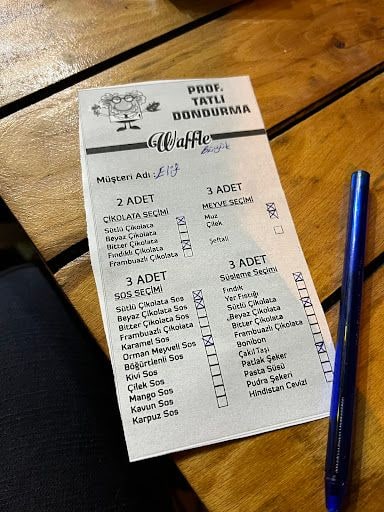 PROF.
TATLI
DONDURMA
Waffle
Müşteri Adı : Elif
2 ADET
ÇİKOLATA SEÇİMİ
Sütlü Çikolata
Beyaz Çikolata
Bitter Çikolata
Fındıklı Çikolata
Frambuazlı Çikolata
3 ADET
MEYVE SEÇİMİ
Muz
Çilek
Şeftali
3 ADET
SOS SEÇİMİ
Sütlü Çikolata Sos
Beyaz Çikolata Sos
Bitter Çikolata Sos
Frambuazlı Çikolata
Karamel Sos
Orman Meyveli Sos
Böğürtlenli Sos
Kivi Sos
Çilek Sos
Mango Sos
Kavun Sos
Karpuz Sos
3 ADET
Süsleme Seçimi
Fındık
Yer Fıstığı
Sütlü Çikolata
Beyaz Çikolata
Bitter Çikolata
Frambuazlı Çikolata
Bonibon
ÇakılTaşı
Patlak Şeker
Pasta Süsü
Pudra Şekeri
Hindistan Cevizi